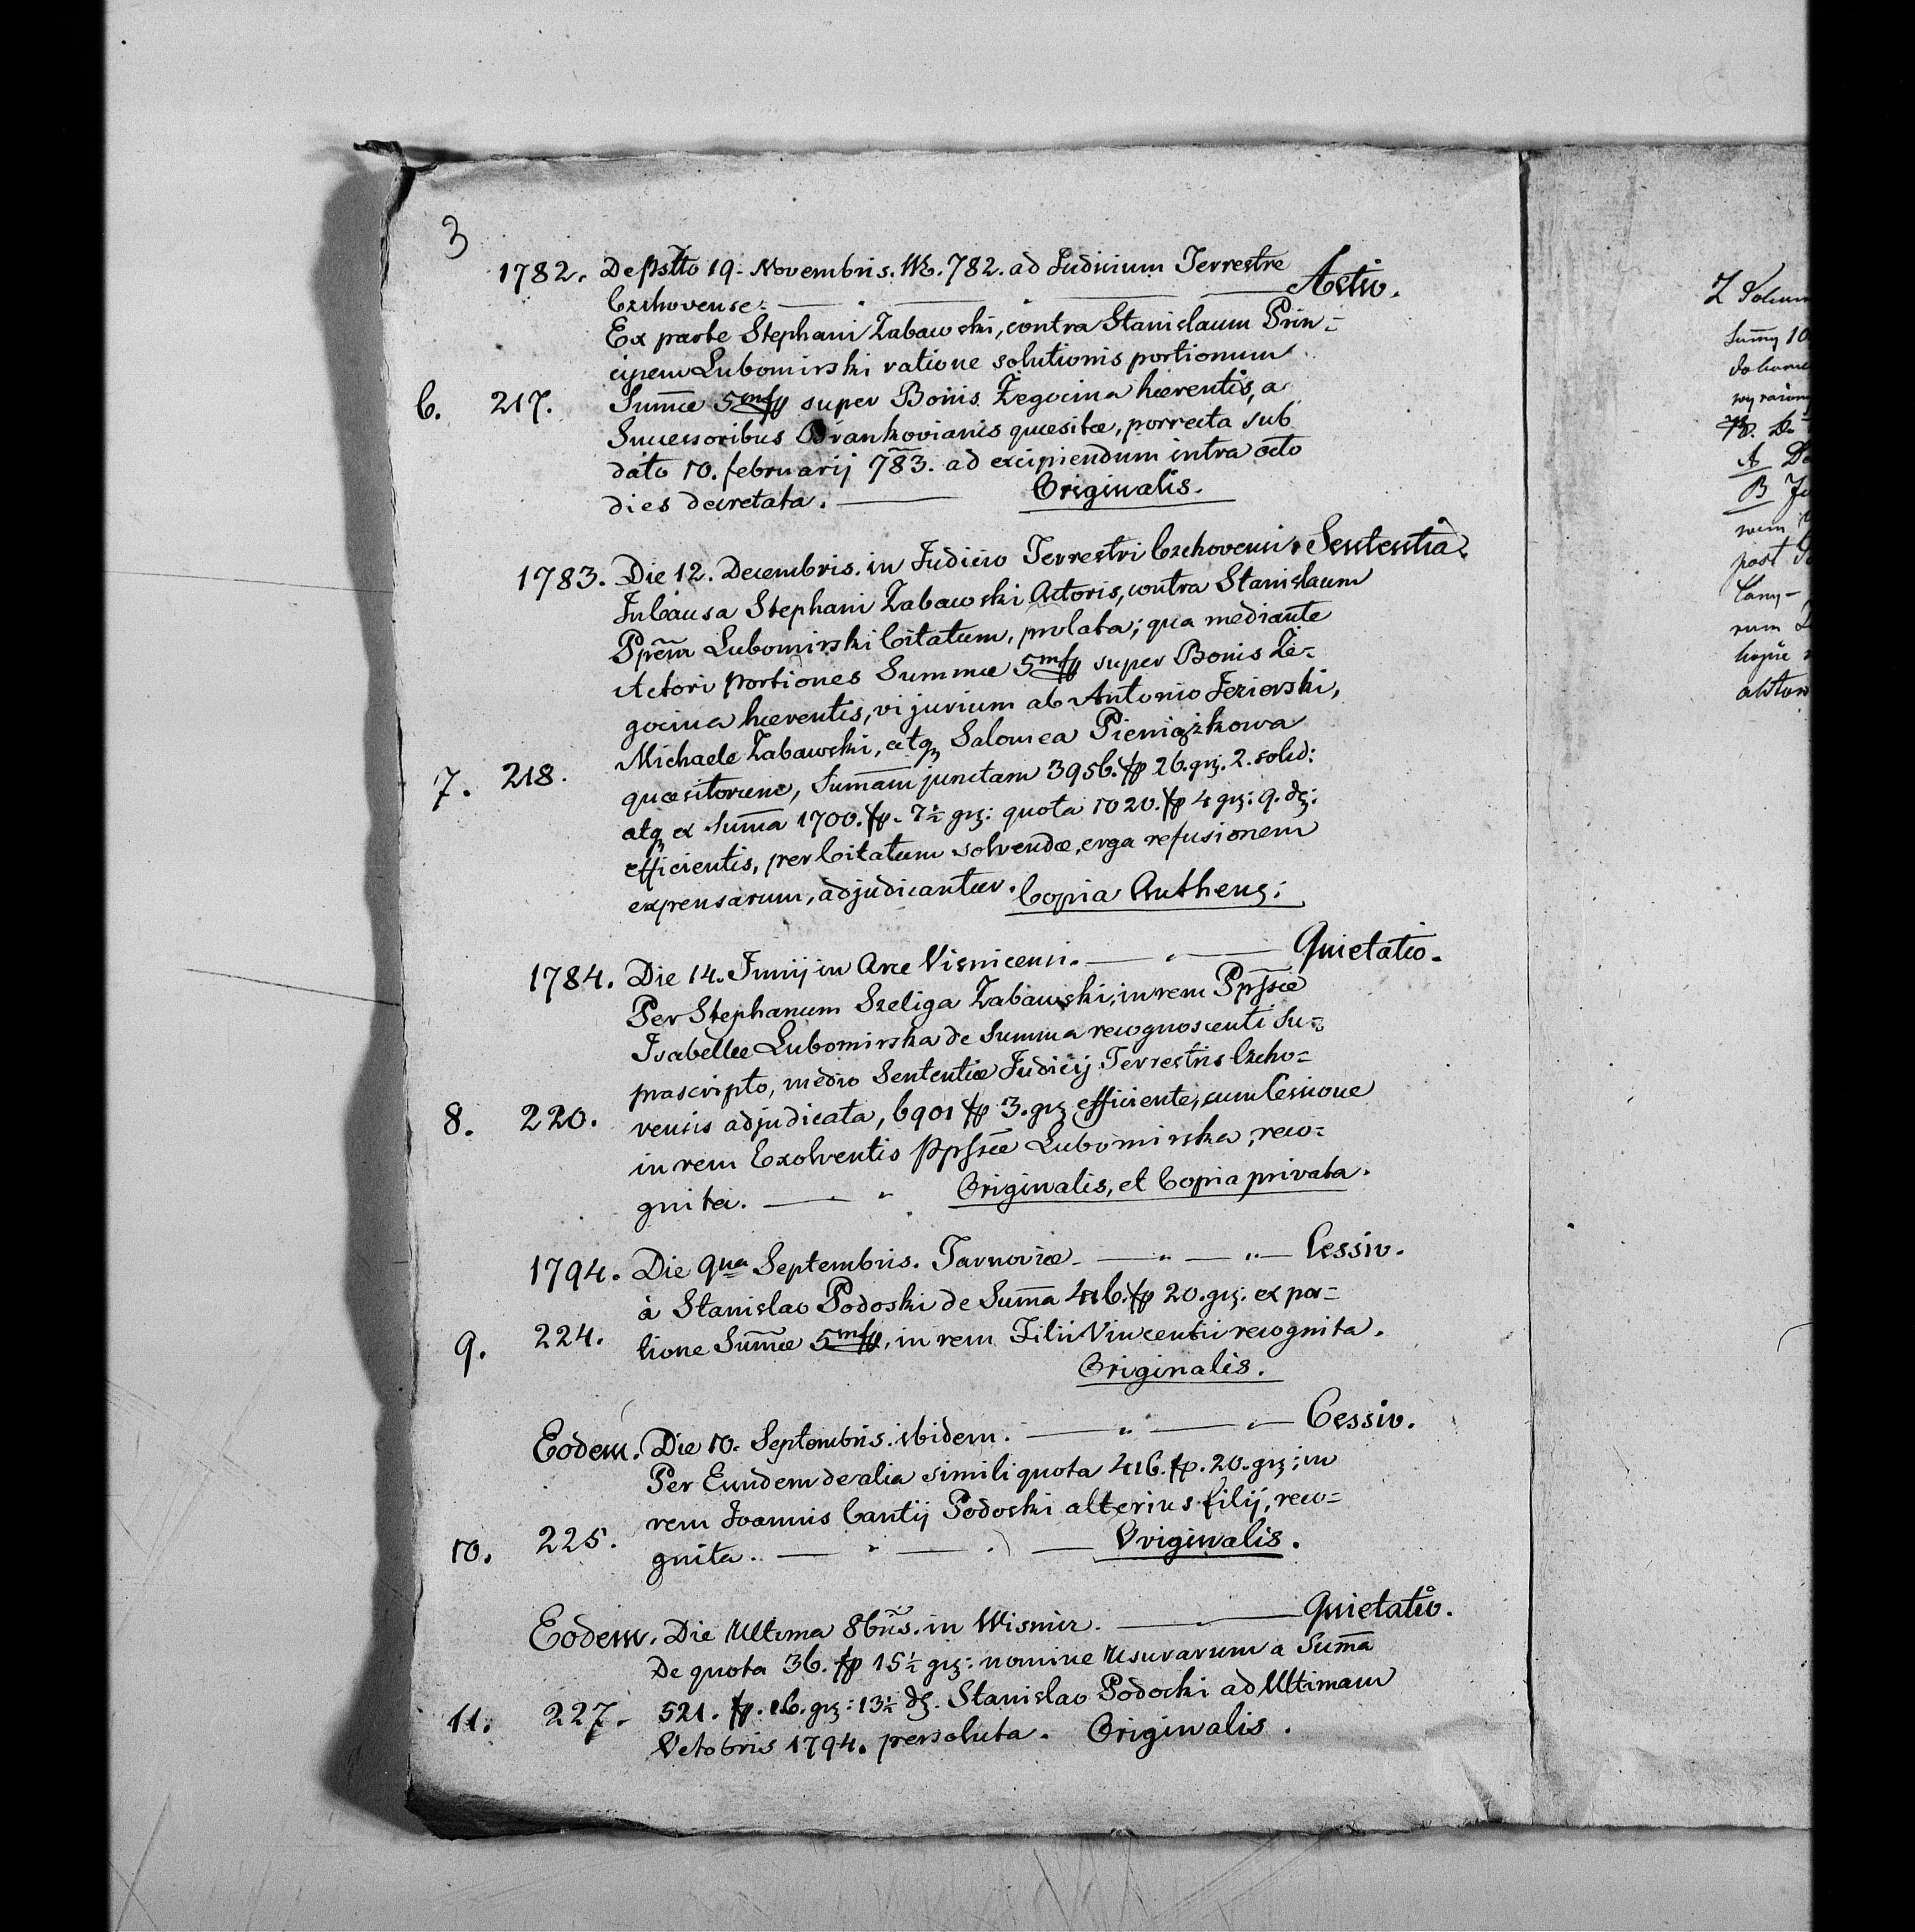 3
1782. De pstto 19. Novembris. 782. ad Judicium Terrestre
Czchovense. — Actio.
Ex parte Stephani Zabawski, contra Stanislaum Prin=
cipem Lubomirski ratione solutionis portionum
6. 217. Summæ 5mfp super Bonis Żegocina hærentis, a
Successoribus Brankovianis quæsitæ, porrecta sub
dato 10. februarij 783. ad excipiendum intra octo
dies decretata. — Originalis.
1783. Die 12. Decembris. in Judicio Terrestri Czchovensi. Sententia.
In Causa Stephani Zabawski Actoris, contra Stanislaum
Ppem Lubomirski Citatum, prolata; qua mediante
Actori portiones Summæ 5mfp super Bonis Że=
gocina hærentis, vi jurium ab Antonio Jezierski,
Michaele Zabawski, atq Salomea Pieniążkowa
7. 218. quæsitorum, Summam junctam 3956. fp 26. grz. 2. solid:
atq ex Summa 1700. fp. 7½ grz: quota 1020. fp 4 grz: 9. dz:
efficientis, per Citatum solvendæ, erga refusionem
expensarum, adjudicantur. Copia Authenz:
1784. Die 14. Junij in Arce Visnicensi. — Quietatio.
Per Stephanum Szeliga Zabawski, in rem Ppssæ
Isabellæ Lubomirska de Summa recognoscenti su=
prascripto, medio Sententiæ Judicij Terrestris Czcho=
8. 220. vensis adjudicata, 6901 fp 3. grz efficiente, cum Cessione
in rem Exolventis Ppssæ Lubomirska, reco=
gnita. — Originalis, et Copia privata.
1794. Die 9na Septembris. Tarnoviæ — Cessio.
à Stanislao Podoski de Summa 416. fp 20. grz. ex por=
9. 224. tione Summæ 5mfp, in rem Filii Vincentii recognita.
Originalis.
Eodem. Die 10. Septembris. ibidem. — Cessio.
Per Eundem de alia simili quota 416. fp. 20. grz; in
rem Joannis Cantij Podoski alterius filij, reco=
10. 225. gnita. — Originalis.
Eodem. Die Ultima 8bris. in Wisnicz. — Quietatio.
De quota 36. fp 15½ grz: nomine Usurarum a Summa
11. 227. 521. fp. 26. grz: 13½ dz. Stanislao Podoski ad Ultimam
Octobris 1794. persoluta. Originalis.